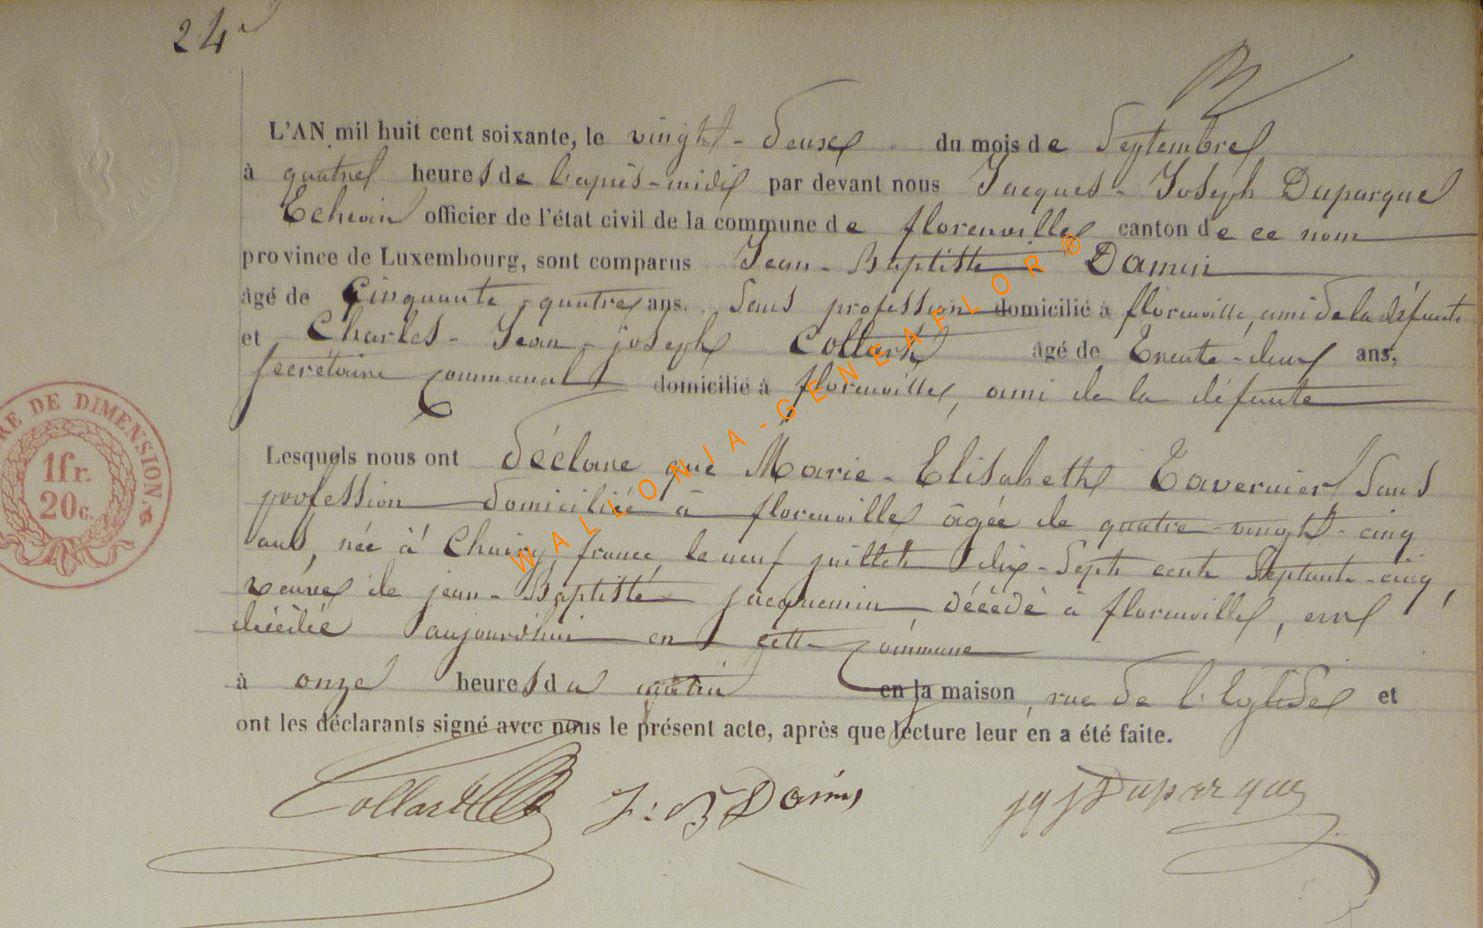 24
L'AN mil huit cent soixante, le vinght-deux du mois de Septembre
à quatre heures de l'après-midi par devant nous Jacques-Joséph Duparque
Echevin officier de l'état civil de la commune de florenville canton de ce nom
province de Luxembourg, sont comparus Jean-Baptiste Damin
âgé de Cinquante-quatre ans. Sans profession domicilié à florenville, ami de la défunte
et Charles-Jean-joseph Collard âgé de Trente-deux ans,
secrétaire communal domicilié à florenville, ami de la défunte
Lesquels nous ont déclare que Marie-Elisabeth Tavernier Sans
profession domiciliée à florenville âgée de quatre-vinght-cinq
ans, née à france, le neuf juillet dix-Sept cent Septante-cinq,
veuve de jean-Baptiste jacquemin décédé à florenville, est
décédée aujourd'hui en cette commune
à onze heures du matin en la maison, rue de l'Eglise et
ont les déclarants signé avec nous le présent acte, après que lecture leur en a été faite.
Collard J:B Damin jqjDuparque
RE DE DIMENSION.
1fr.
20c.
WALLONIA-GENEAFLOR®